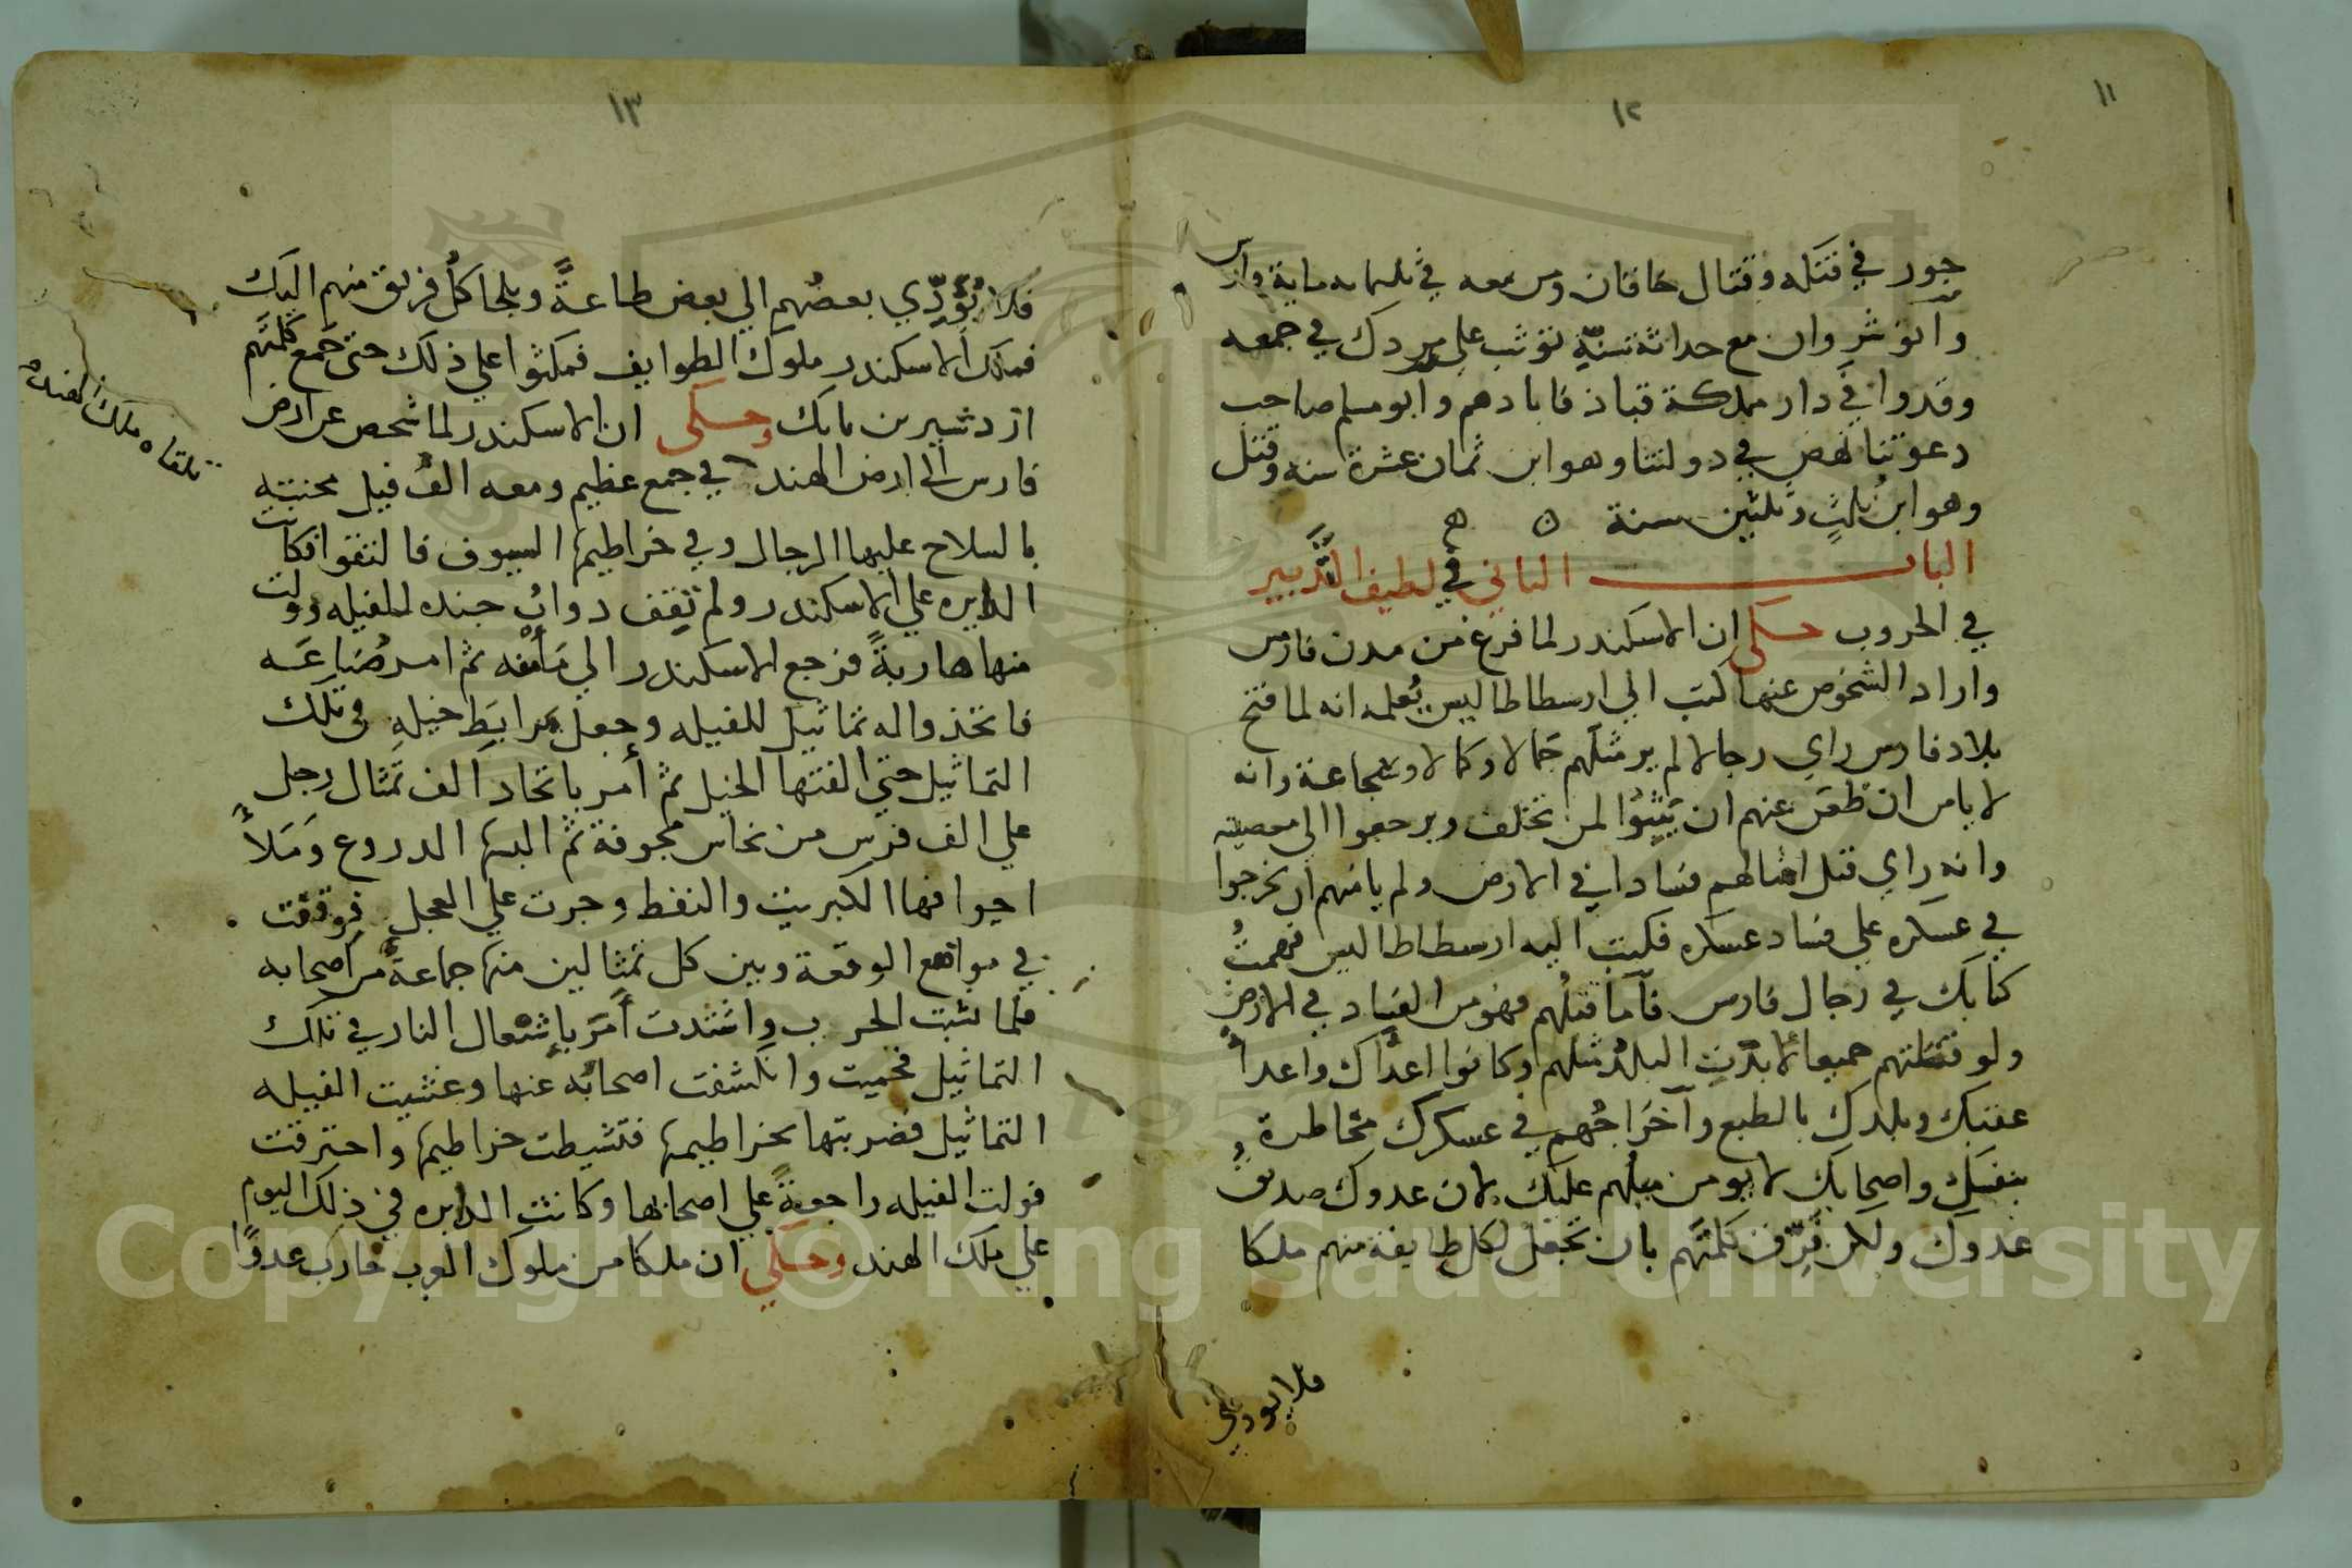 ١١
١٢
جور في قتله وقتال خاقان ومن معه في ثلثمايه وا
وانوشروان مع حداثة سنّه توثب على مزدك في جمعه
وقدروا في دار مملكة قباذ فابادهم وابو مسلم صاحب
دعوتنا نهض في دولتنا وهو ابن ثمان عشرة سنه وقتل
وهو ابن ثلثٍ وثلثين سنة ه ه
الباب الثاني في لطيف التَّدبير
في الحروب حكى ان الاسكندر لما فرغ من مدن فارس
واراد الشخوص عنها كتب الي ارسطاطاليس يُعلمه انه لما فتح
بلاد فارس راي رجالا لم ير مثلهم جمالا وكمالا وشجاعة وانه
لا يامن ان ظعن عنهم ان يثبوا لمن تخلف ويرجعوا الى معصيته
وانه راي قتل امثالهم فسادا في الارض ولم يامنهم ان يخرجوا
في عسكره علي فساد عسكره فكتب اليه ارسطاطاليس فهمتُ
كتابك في رجال فارس فاما قتلهم فهو من الفساد في الارض
ولو قتلتهم جميعا لانبتت البلدُ مثلهم وكانوا اعداك واعدا
عقبك وبلدك بالطبع وآخراجُهم في عسكرك مخاطرة
بنفسك واصحابك لا يومن ميلهم عليك لان عدوك صديق
عدوك ولكن فرّق كلمتَهم بان تجعل لكل طايفة منهم ملكا
فلا يودي
١٣
فلا يُؤَدِّي بعضهم الي بعض طاعةً ويلجا كل فريق منهم اليك
فملك الاسكندر ملوك الطوايف فمكثوا علي ذلك حتى جمع كلمتهم
ازدشير بن بابك وحكى ان الاسكندر لما شخص عن ارض
فارس الى ارض الهند في جمع عظيم ومعه الفُ فيل
تلقاه ملك الهند
بالسلاح عليها الرجال وفي خراطيمها السيوف فالتقوا فكانت
الدايره علي الاسكندر ولم تقف دوابُ جنده للفيله وولت
منها هاربةً فرجع الاسكندر الي مَأمنه ثم امر صُنّاعَه
فاتخذوا له تماثيل للفيله وجعل مرابط خيله في تلك
التماثيل حتي الفتها الخيل ثم أمر باتخاد الف تمثال رجل
علي الف فرس من نحاس مجوفة ثم البسها الدروع وَمَلأَ
اجوافها الكبريت والنفط وجرت علي العجل فوقفت
في مواضع الوقعة وبين كل تمثالين منها جماعةٌ من اصحابه
فلما نشبت الحرب واشتدت أمَرَ بإشعال النار في تلك
التماثيل فحميت وانكشفت اصحابُه عنها وغشيت الفيله
التماثيل فضربتها بخراطيمها فتشيطت خراطيمها واحترقت
فولت الفيله راجعةً علي اصحابها وكانت الدايره في ذلك اليوم
علي ملك الهند وحكي ان ملكا من ملوك العرب حارب عدوًا
Copyright © King Saud University